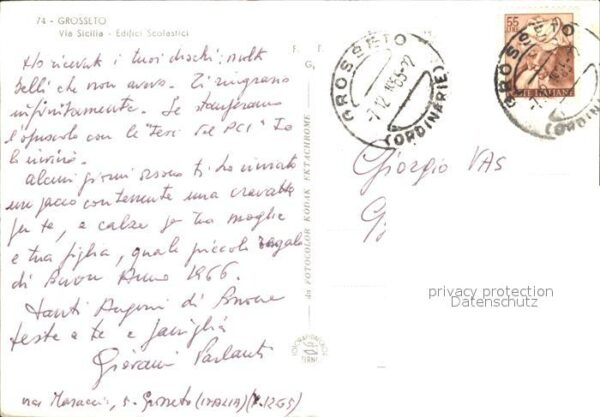 74 - GROSSETO
Via Sicilia - Edifici Scolastici
Ho ricevuti i tuoi dischi: molti
belli che non avevo. Ti ringrazio
infinitamente. Se stamperanno
l'opuscolo con le "Tesi del PCI" te
lo invierò.
Alcuni giorni or sono ti ho inviato
un pacco contenente una cravatta
per te, e calze per tua moglie
e tua figlia, quale piccolo regalo
di Buon Anno 1966.
Tanti Auguri di Buone
feste a te e famiglia
Giovanni Parlanti
via Masaccio, 5 - Grosseto (ITALIA)
F. T.
G,
da FOTOCOLOR KODAK EKTACHROME
GROSSETO
(ORDINARIE)
55
LIRE
POSTE ITALIANE
GROSSETO
(ORDINARIE)
Giorgio VAS
G
privacy protection
Datenschutz